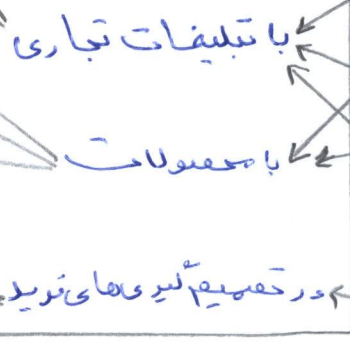 با تبلیغات تجاری
با محصولات
در تصمیم گیری های خرید